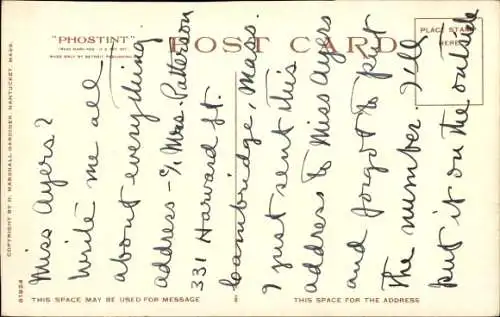 "PHOSTINT"
POST CARD
PLACE STAMP
HERE
COPYRIGHT BY H. MARSHALL GARDINER, NANTUCKET, MASS.
Miss Ayers?
Write me all
about everything
address - c/o Mrs. Patterson
331 Harvard St.
Cambridge, Mass.
I just sent this
address to Miss Ayers
and forgot to put
the number. I'll
put it on the outside
THIS SPACE MAY BE USED FOR MESSAGE
THIS SPACE FOR THE ADDRESS